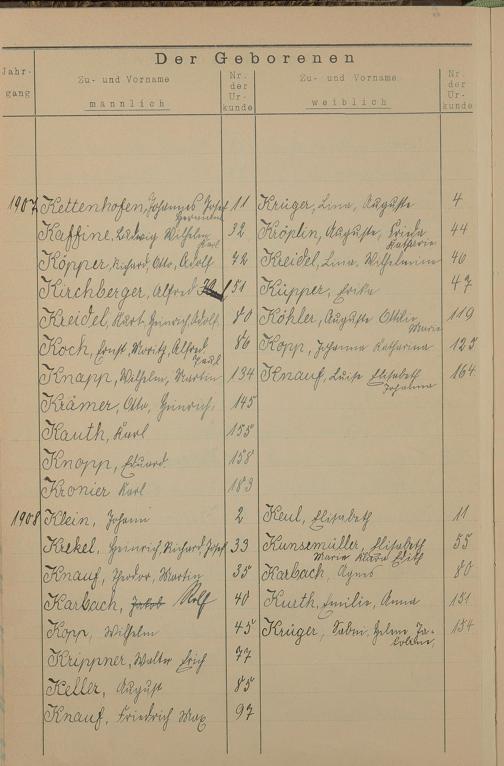 Der Geborenen
Jahr-
gang
Zu- und Vorname
männlich
Nr.
der
Ur-
kunde
Zu- und Vorname
weiblich
Nr.
der
Ur-
kunde
1907 Kettenhofen, Johannes Josef 11 Krüger, Lina, Auguste 4
Hermann
Kaffine, Ludwig Wilhelm 32 Kröplin, Auguste, Frieda 44
Karl Katharine
Köpper, Richard, Otto, Adolf 42 Kreidel, Lina, Wilhelmine 46
Kirchberger, Alfred 51 Küpper, Erika 47
Kreidel, Kurt, Heinrich, Adolf 80 Köhler, Auguste Ottilie 119
Marie
Koch, Ernst, Moritz, Alfred 86 Kopp, Johanna Katharina 123
Paul
Knapp, Wilhelm, Martin 134 Knauf, Luise Elisabeth 164
Johanna
Krämer, Otto, Heinrich 145
Kauth, Karl 155
Knopp, Eduard 158
Kronier Karl 183
1908 Klein, Johann 2 Keul, Elisabeth 11
Krekel, Heinrich, Richard, Josef 33 Kunsemüller, Elisabeth 55
Maria Klara
Knauf, Theodor, Martin 35 Karbach, Agnes 80
Karbach, Jakob Adolf 40 Kurth, Emilie, Anna 151
Kopp, Wilhelm 45 Krüger, Helene Ja- 154
kobine
Krippner, Walter Erich 77
Keller, August 85
Knauf, Friedrich Max 97